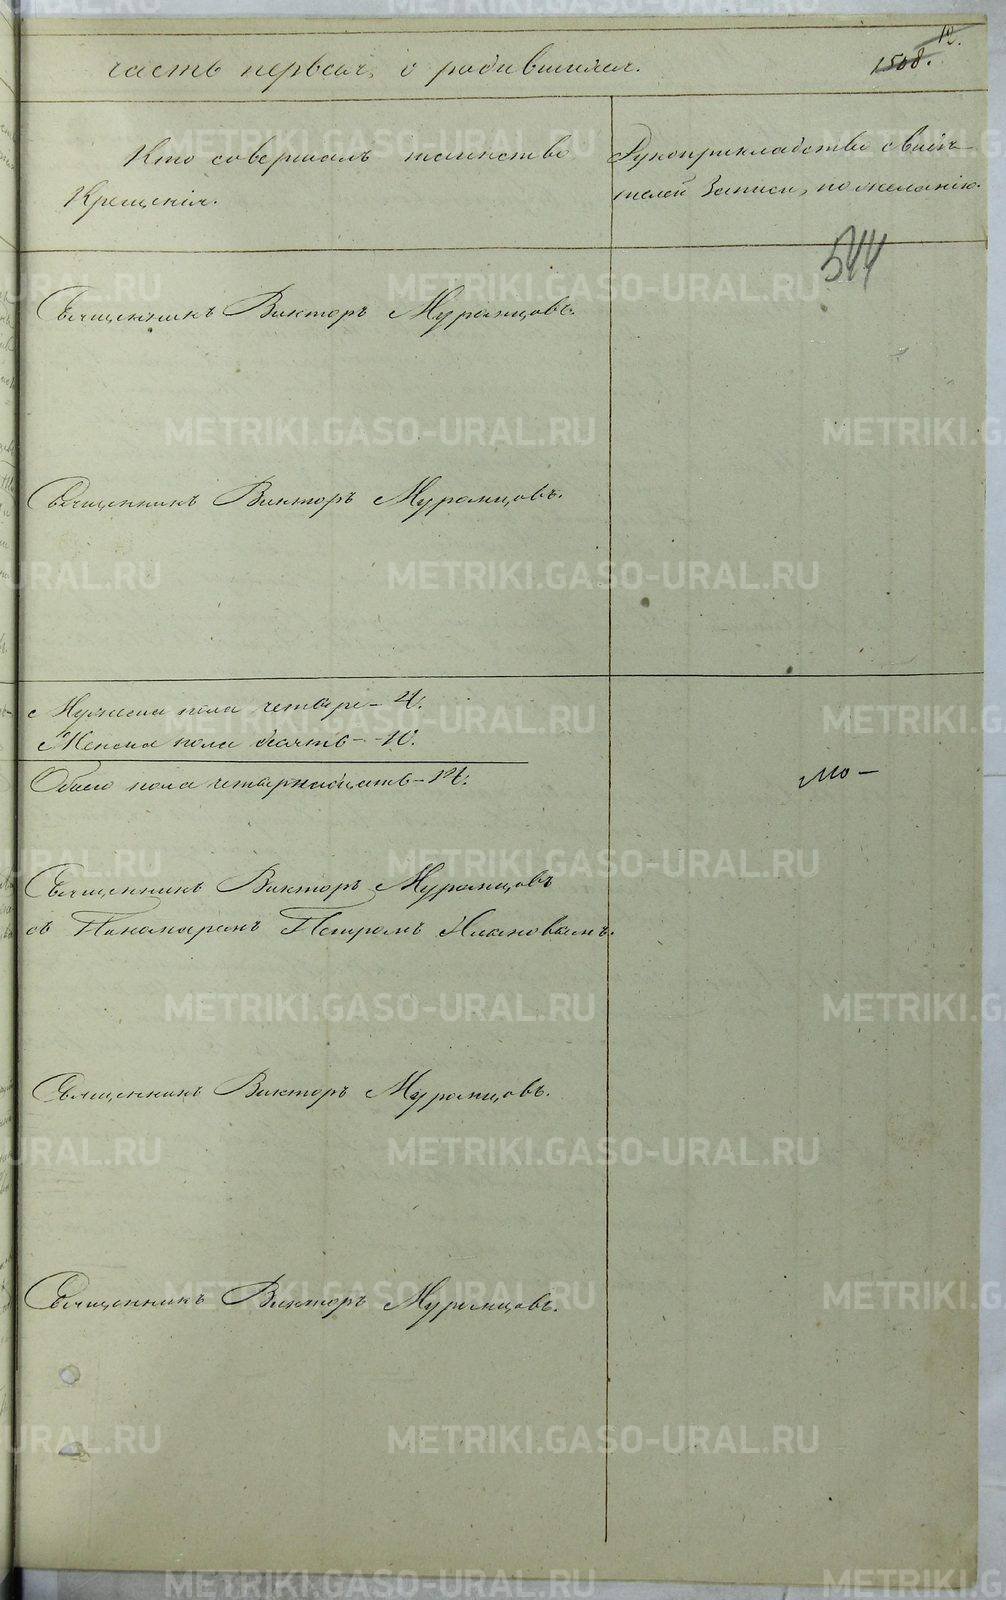 часть первая, о родившихся.
12.
1508.
Кто совершалъ таинство
Крещенія.
Рукоприкладство свидѣ-
телей записи, по желанію.
544
Священникъ Викторъ Муромцовъ.
Священникъ Викторъ Муромцовъ.
Мужеска пола четыре - 4.
Женска пола десять - 10.
Обоего пола четырнадцать - 14.
Священникъ Викторъ Муромцовъ
съ Пономаремъ Петромъ
Священникъ Викторъ Муромцовъ.
Священникъ Викторъ Муромцовъ.
METRIKI.GASO-URAL.RU